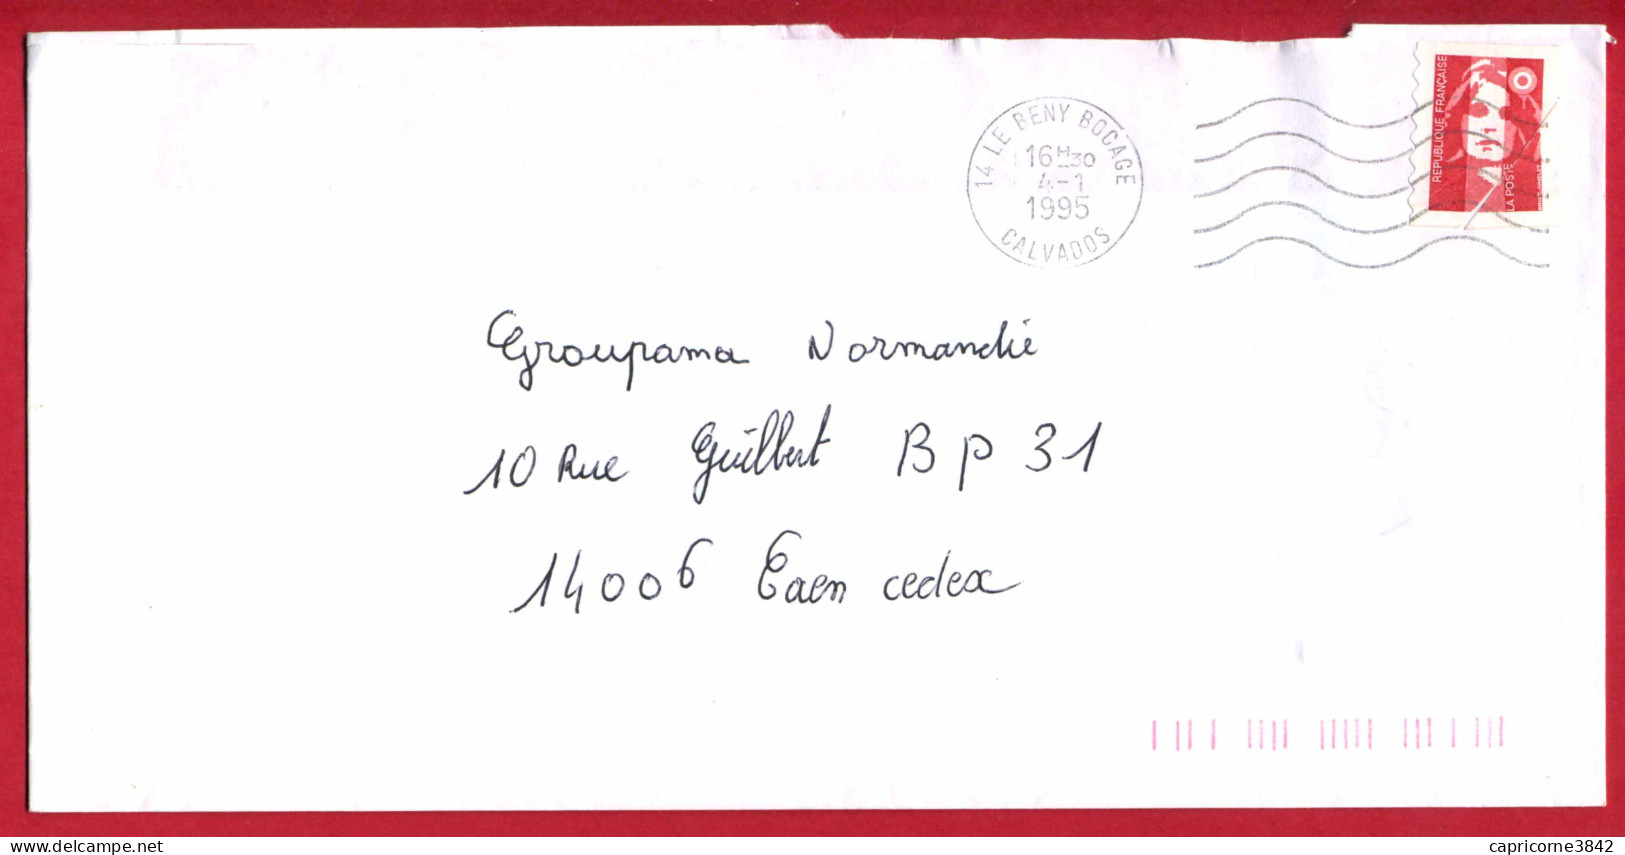 14 LE BENY BOCAGE
16H30
4-1
1995
CALVADOS
REPUBLIQUE FRANÇAISE
LA POSTE
Groupama Normandie
10 Rue Guilbert BP 31
14006 Caen cedex
delcampe.net
capricorne3842